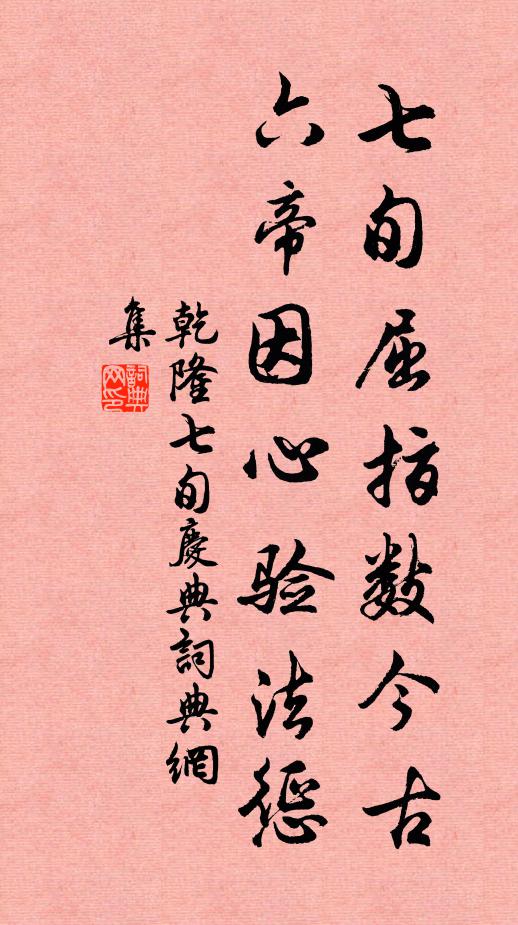 七旬屈指数今古
六帝因心验法惩
乾隆七旬慶典詞典網
集
詞典网印